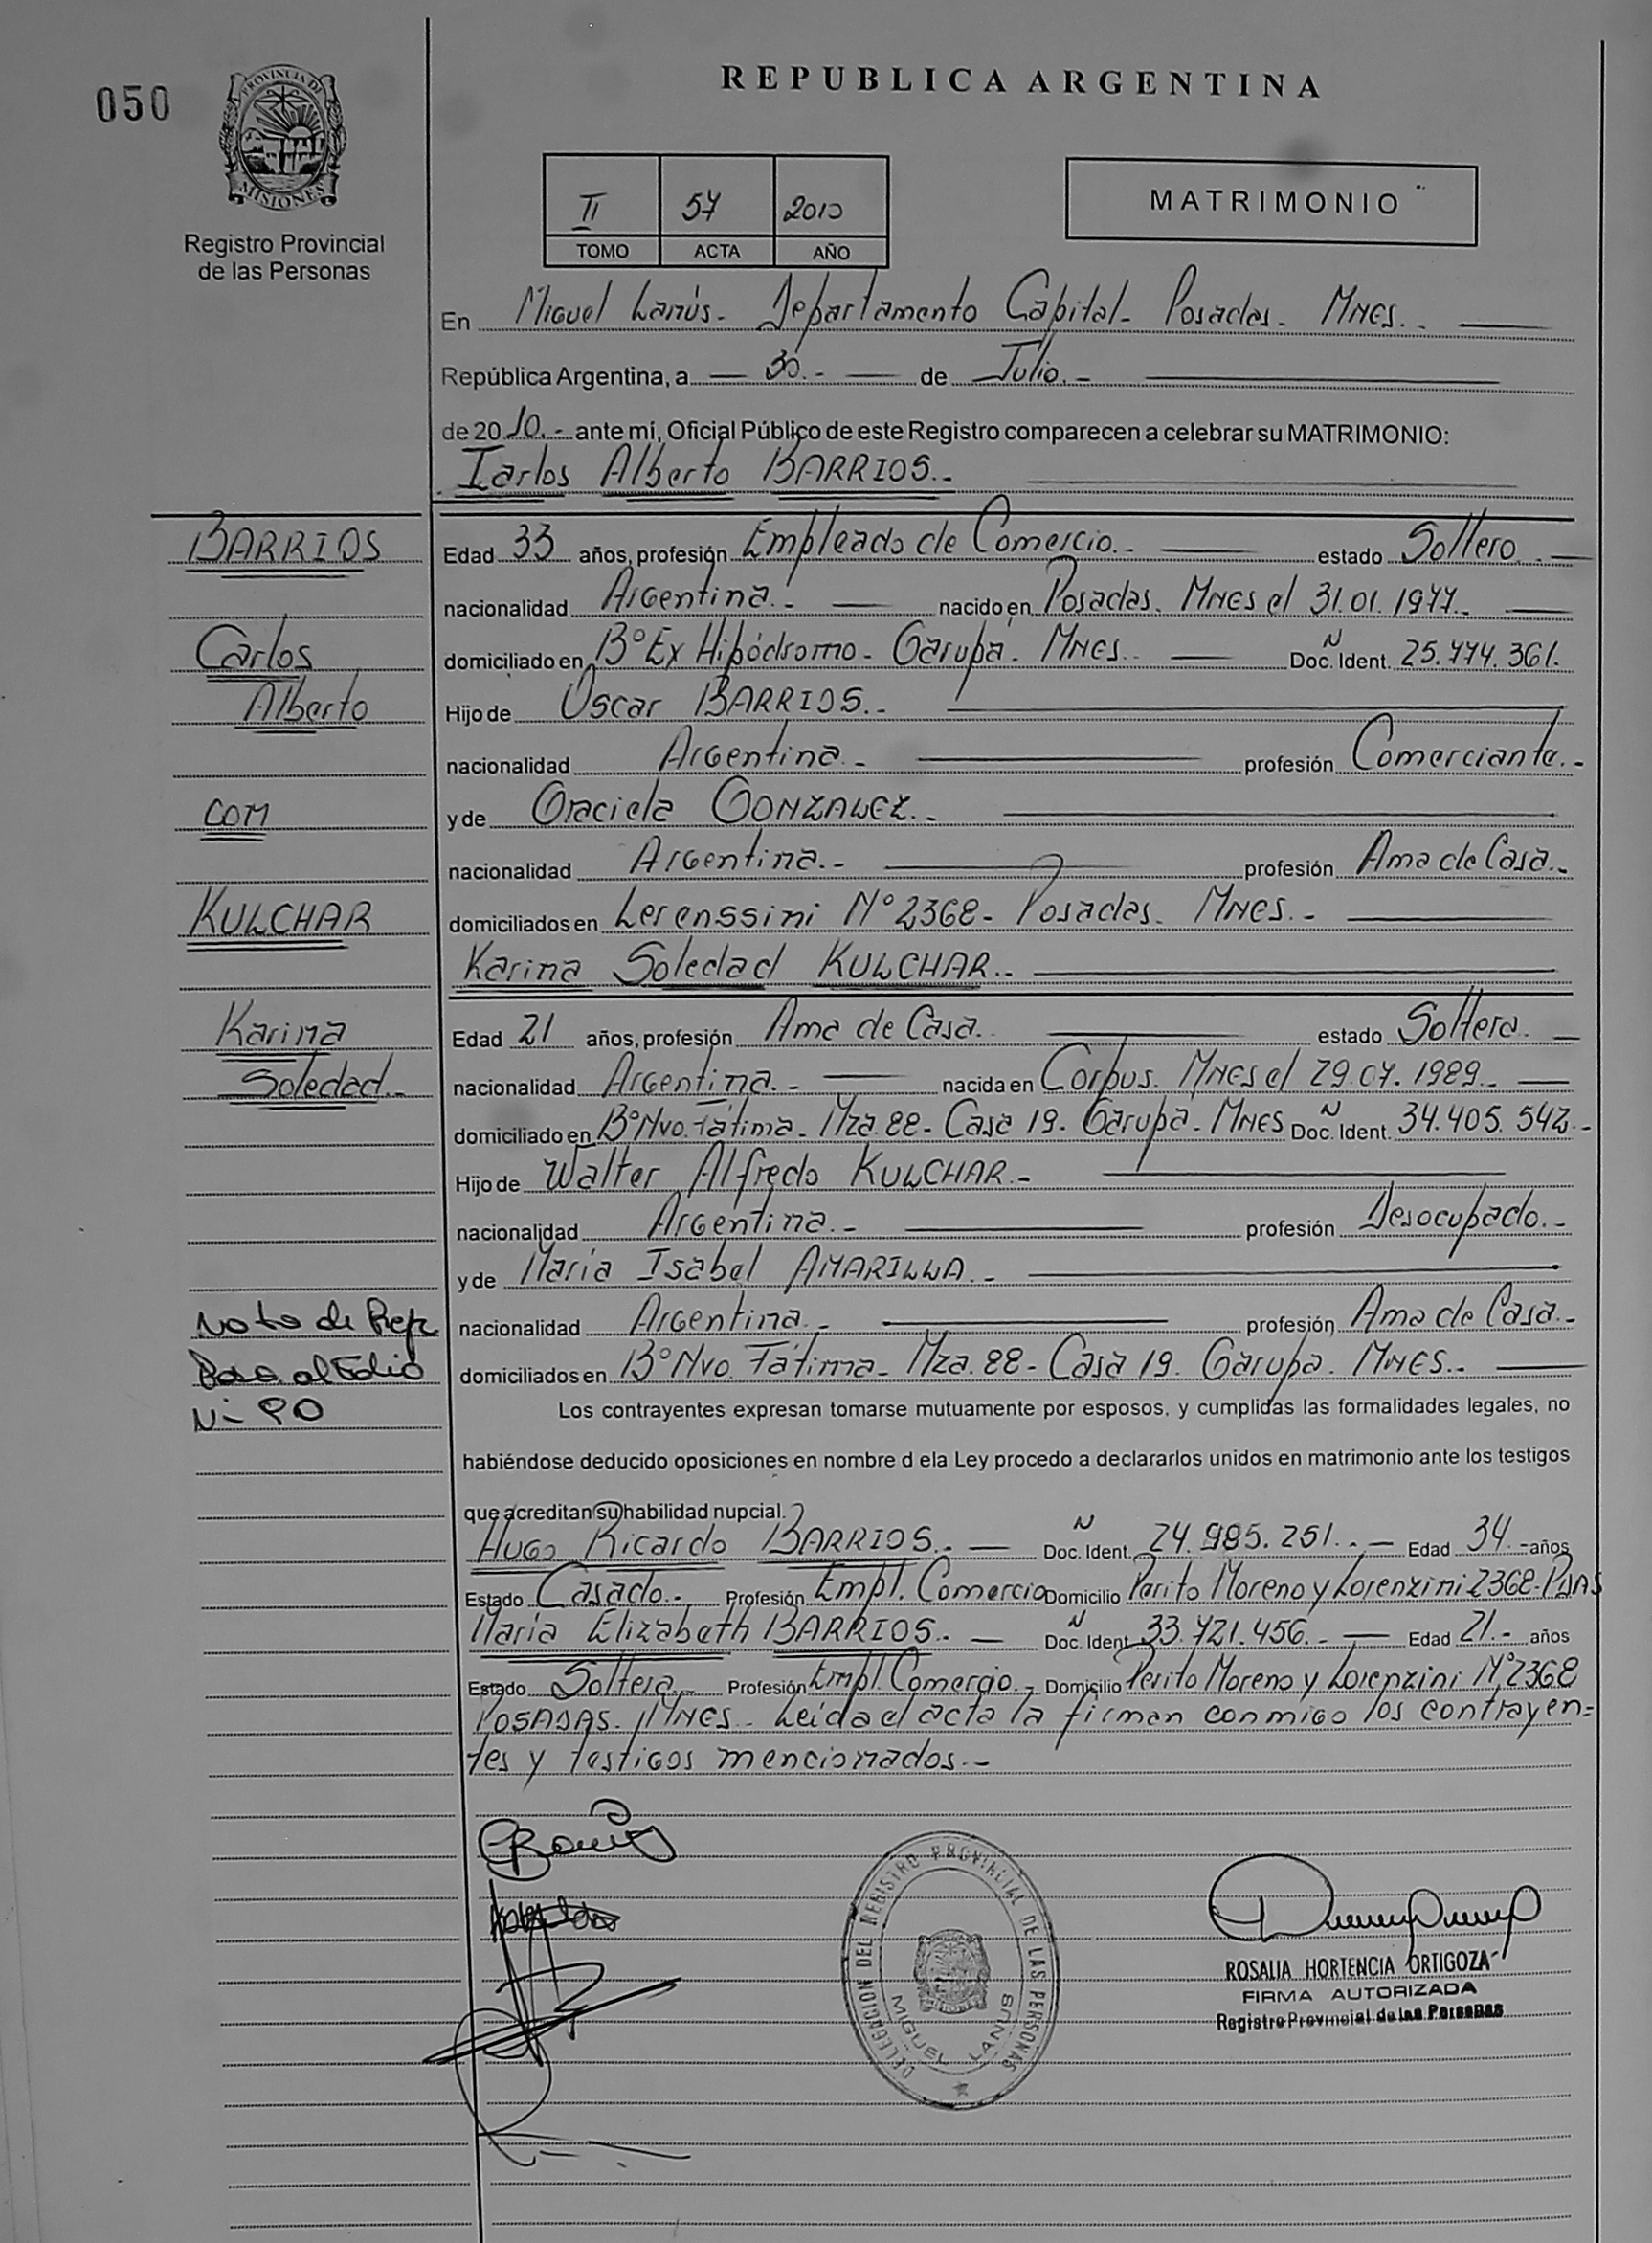 REPUBLICA ARGENTINA
050
PROVINCIA DE MISIONES
Registro Provincial
de las Personas
II 57 2010
TOMO ACTA AÑO
MATRIMONIO
En Miguel Lanús. Departamento Capital. Posadas. MNES.
República Argentina, a 30.- de Julio.-
de 2010.- ante mí, Oficial Público de este Registro comparecen a celebrar su MATRIMONIO:
Carlos Alberto BARRIOS.-
BARRIOS
Edad 33 años, profesión Empleado de Comercio.- estado Soltero.-
nacionalidad Argentina.- nacido en Posadas. MNES el 31.01.1977.-
Carlos
domiciliado en B° Ex Hipódromo. Garupá. MNES. Doc. Ident. N 25.774.361.
Alberto
Hijo de Oscar BARRIOS.-
nacionalidad Argentina.- profesión Comerciante.-
COM
y de Graciela GONZALEZ.-
nacionalidad Argentina.- profesión Ama de Casa.-
KULCHAR
domiciliados en Lerenssini N° 2368- Posadas. MNES.-
Karina Soledad KULCHAR.-
Karina
Edad 21 años, profesión Ama de Casa. estado Soltera.
Soledad.-
nacionalidad Argentina.- nacida en Corpus. MNES el 29.07.1989.-
domiciliado en B° Nvo. Fátima. Mza. 88- Casa 19. Garupá. MNES Doc. Ident. N 34.405.542.-
Hijo de Walter Alfredo KULCHAR.-
nacionalidad Argentina.- profesión Desocupado.-
y de María Isabel AMARILLA.-
Nota de Ref
nacionalidad Argentina.- profesión Ama de Casa.-
Pasa al Folio
domiciliados en B° Nvo. Fátima. Mza. 88- Casa 19. Garupá. MNES.-
N- 90
Los contrayentes expresan tomarse mutuamente por esposos, y cumplidas las formalidades legales, no
habiéndose deducido oposiciones en nombre d ela Ley procedo a declararlos unidos en matrimonio ante los testigos
que acreditan su habilidad nupcial.
Hugo Ricardo BARRIOS.- Doc. Ident. N 24.985.251.- Edad 34.- años
Estado Casado.- Profesión Empl. Comercio Domicilio Perito Moreno y Lorenzini 2368- PDAS
María Elizabeth BARRIOS.- Doc. Ident. N 33.721.456.- Edad 21.- años
Estado Soltera.- Profesión Empl. Comercio.- Domicilio Perito Moreno y Lorenzini N° 2368
POSADAS. MNES.- Leída el acta la firman conmigo los contrayen=
tes y testigos mencionados.-
DELEGACION DEL REGISTRO PROVINCIAL DE LAS PERSONAS
MIGUEL LANUS
ROSALIA HORTENCIA ORTIGOZA
FIRMA AUTORIZADA
Registro Provincial de las Personas